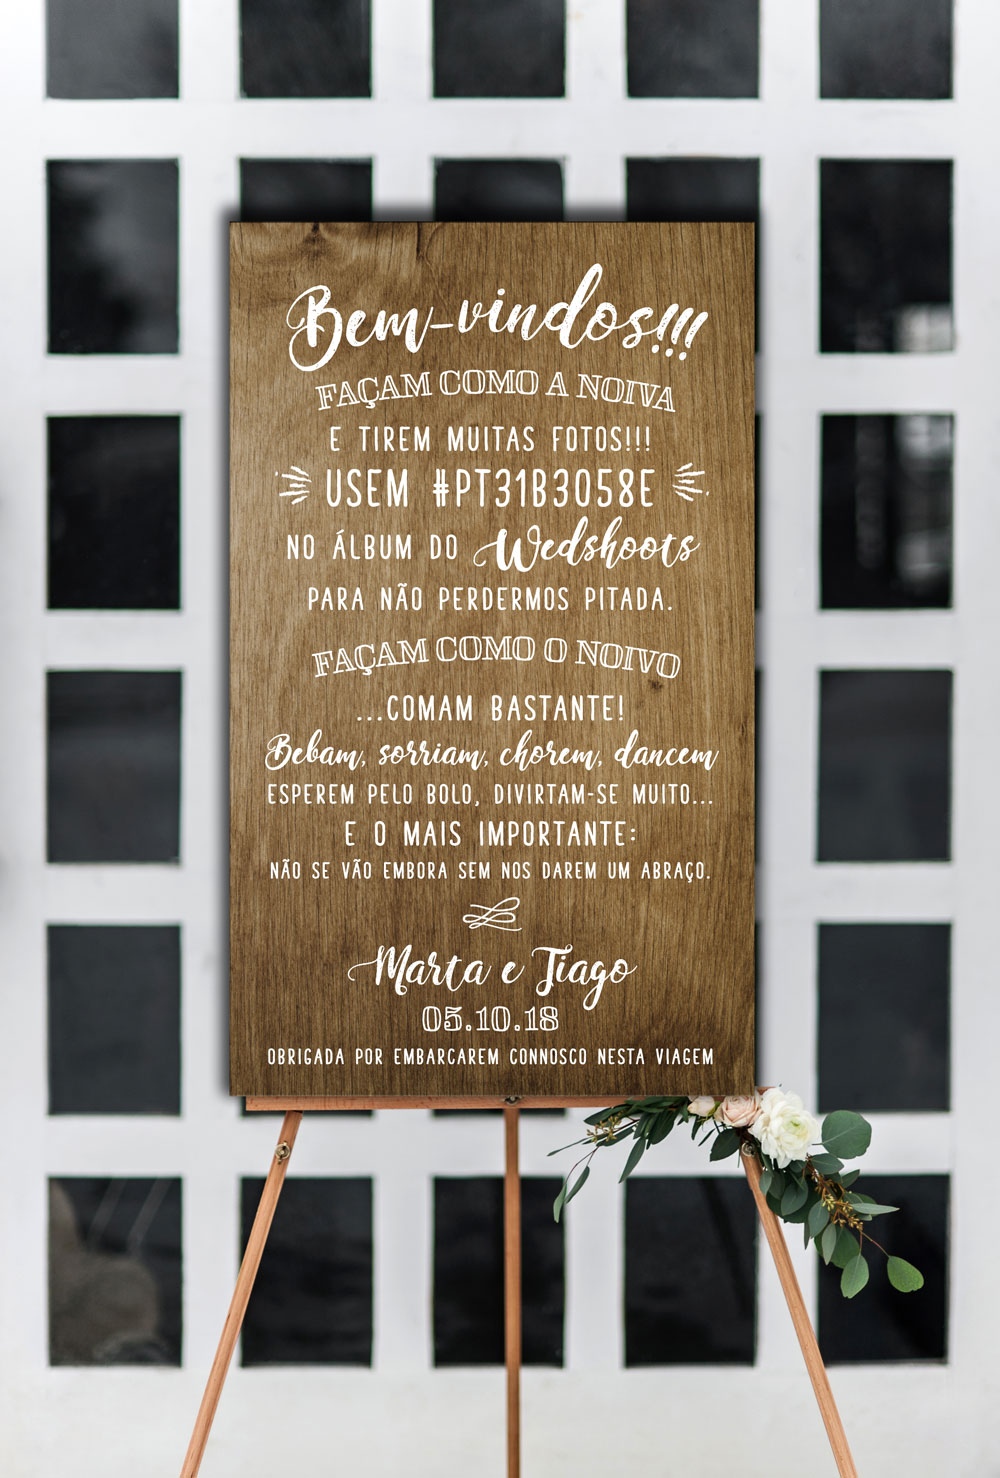 Bem-vindos!!!
FAÇAM COMO A NOIVA
E TIREM MUITAS FOTOS!!!
USEM #PT31B3058E
NO ÁLBUM DO Wedshoots
PARA NÃO PERDERMOS PITADA.
FAÇAM COMO O NOIVO
...COMAM BASTANTE!
Bebam, sorriam, chorem, dancem
ESPEREM PELO BOLO, DIVIRTAM-SE MUITO...
E O MAIS IMPORTANTE:
NÃO SE VÃO EMBORA SEM NOS DAREM UM ABRAÇO.
Marta e Tiago
05.10.18
OBRIGADA POR EMBARCAREM CONNOSCO NESTA VIAGEM